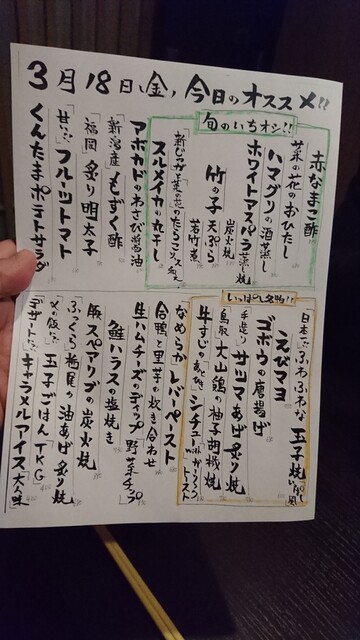 3月18日、金、今日のオススメ!!
旬のいちオシ!!
赤なまこ酢
菜の花のおひたし
ハマグリの酒蒸し
ホワイトアスパラ蒸し焼
竹の子
炭火焼
天ぷら
若竹煮
スルメイカの丸干し
アボカドのわさび醤油
「新潟産」もずく酢
「福岡」炙り明太子
「甘い」フルーツトマト
くんたまポテトサラダ
いっぱし名物!!
日本一ふわふわな玉子焼
えびマヨ
ゴボウの唐揚げ
手造りサツマあげ炙り焼
「鳥取」大山鶏の柚子胡椒焼
シチュー with ガーリックトースト
なめらかレバーペースト
合鴨と里芋の炊き合わせ
生ハムチーズのディップ 野菜チップ
鮭ハラスの塩焼き
豚スペアリブの炭火焼
ふっくら栃尾の油あげ炙り焼
「〆の飯に」玉子ごはんTKG
「デザートに」キャラメルアイス大人味